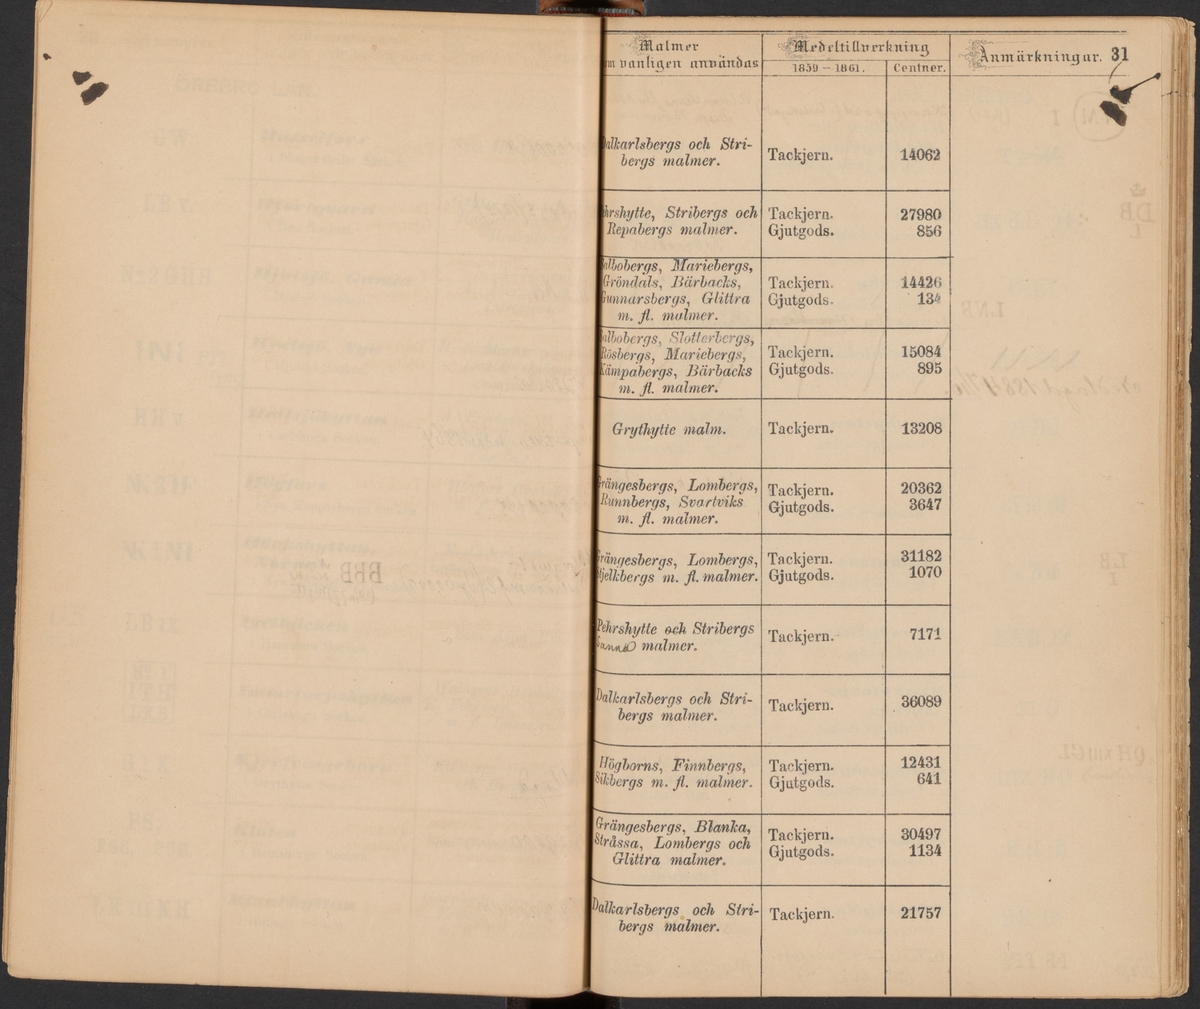 Malmer
vanligen användas
Medeltillverkning
1859 — 1861.
Centner.
Anmärkningar. 31
Dalkarlsbergs och Stri-
bergs malmer.
Tackjern. 14062
Pehrshytte, Stribergs och
Repabergs malmer.
Tackjern. 27980
Gjutgods. 856
Mariebergs,
Gröndals, Bärbacks,
Gunnarsbergs, Glittra
m. fl. malmer.
Tackjern. 14426
Gjutgods. 134
Slotterbergs,
Rösbergs, Mariebergs,
Kämpabergs, Bärbacks
m. fl. malmer.
Tackjern. 15084
Gjutgods. 895
Grythytte malm.
Tackjern. 13208
Grängesbergs, Lombergs,
Runnbergs, Svartviks
m. fl. malmer.
Tackjern. 20362
Gjutgods. 3647
Grängesbergs, Lombergs,
m. fl. malmer.
Tackjern. 31182
Gjutgods. 1070
Pehrshytte och Stribergs
malmer.
Tackjern. 7171
Dalkarlsbergs och Stri-
bergs malmer.
Tackjern. 36089
Högborns, Finnbergs,
Sikbergs m. fl. malmer.
Tackjern. 12431
Gjutgods. 641
Grängesbergs, Blanka,
Stråssa, Lombergs och
Glittra malmer.
Tackjern. 30497
Gjutgods. 1134
Dalkarlsbergs och Stri-
bergs malmer.
Tackjern. 21757